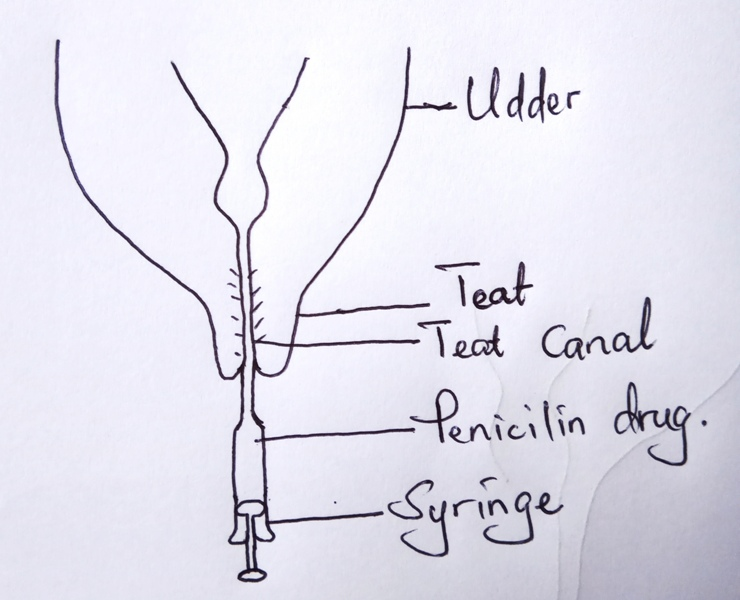 Udder
Teat
Teat Canal
Penicilin drug.
Syringe